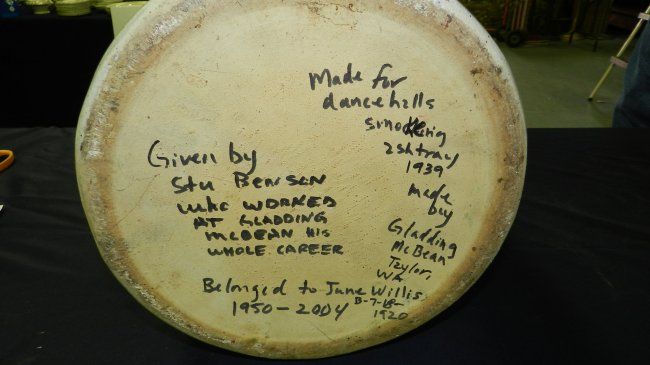 Made for
dancehalls
smoking
ashtray
1939
made
by
Gladding
McBean
Taylor,
WA
Given by
Stu BENSEN
who WORKED
AT GLADDING
MCBEAN HIS
WHOLE CAREER
Belonged to June Willis
1950-2004 B-7-18-
1920